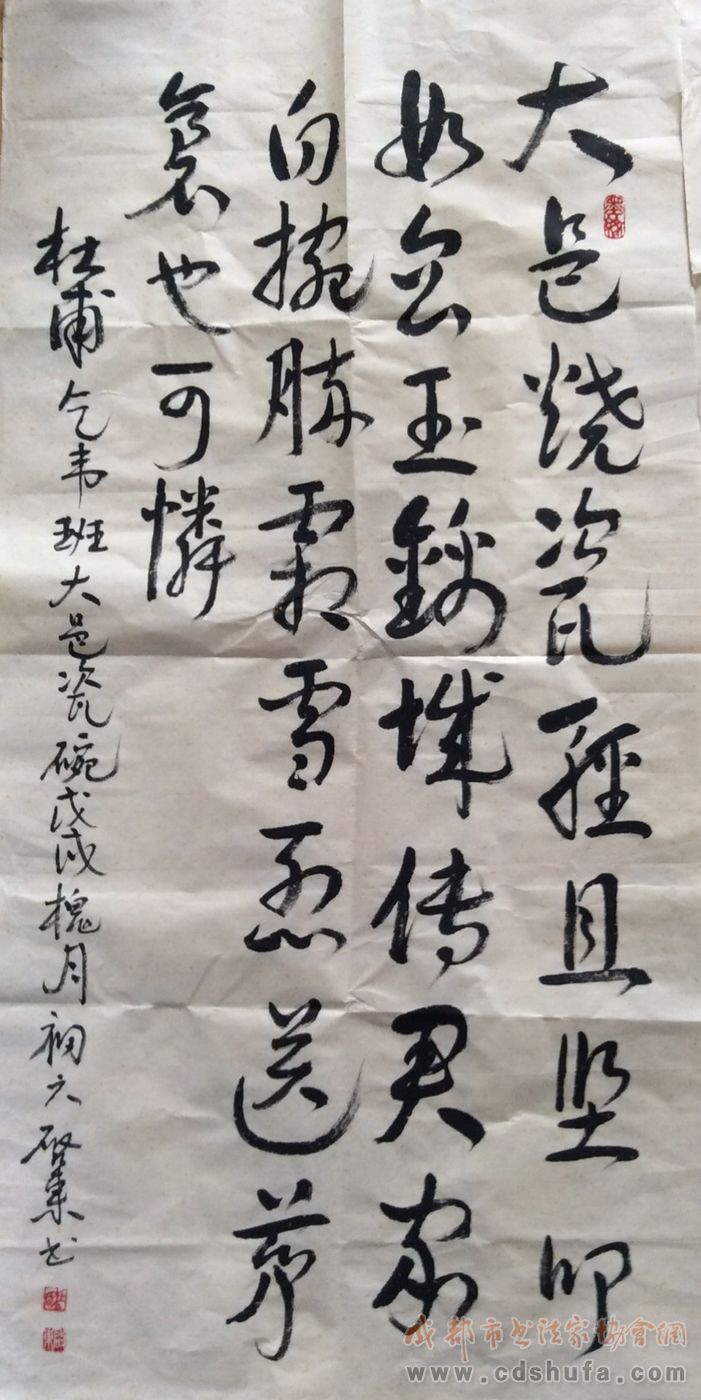 大邑烧瓷轻且坚叩
如哀玉锦城传君家
白椀胜霜雪急送茅
斋也可憐
杜甫乞韦班大邑瓷碗戊戌槐月初六书
成都市书法家協會網
www.cdshufa.com